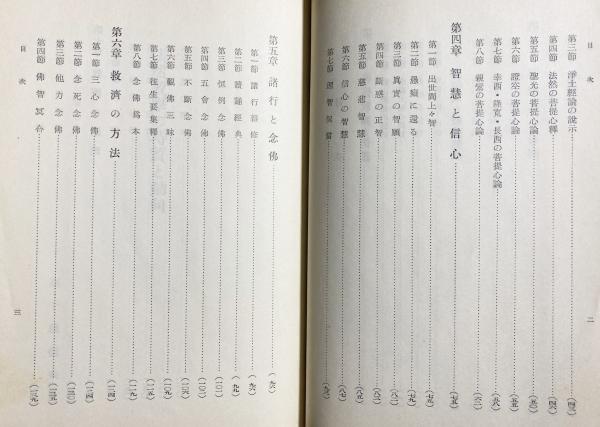 目次
第三節 淨土經論の說示 (四三)
第四節 法然の菩提心釋 (四六)
第五節 聖光の菩提心論 (五〇)
第六節 證空の菩提心論 (五五)
第七節 幸西・隆寬・長西の菩提心論 (五八)
第八節 親鸞の菩提心論 (六二)
第四章 智慧と信心 (七五)
第一節 出世間上々智
第二節 愚癡に還る (七九)
第三節 眞實の智願
第四節 斷惑の正智
第五節 慈悲智慧
第六節 信心の智慧 (八七)
第七節
二
第五章 諸行と念佛 (九六)
第一節 諸行 (九六)
第二節 讀誦經典 (九九)
第三節 恒例念佛 (一〇一)
第四節 五會念佛
第五節 不斷念佛 (一〇六)
第六節 觀佛三昧 (一〇九)
第七節 往生要集釋 (一一六)
第八節 念佛爲本 (一一九)
第六章 救濟の方法 (一二四)
第一節 三心念佛 (一二四)
第二節 念死念佛 (一三〇)
第三節 他力念佛 (一三五)
第四節 佛智冥合 (一三九)
目次
三